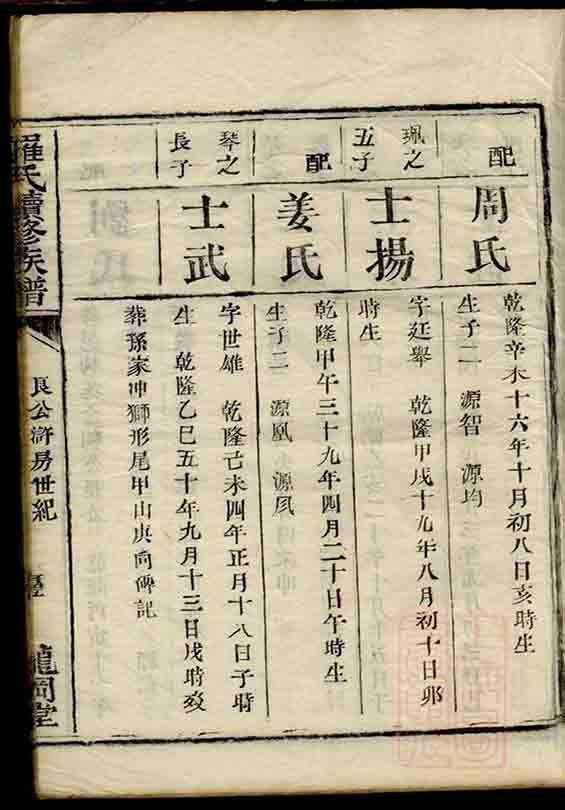 配
周氏
乾隆辛未十六年十月初八日亥時生
生子二 源智 源均
珮之
五子
士揚
字廷舉 乾隆甲戌十九年八月初十日卯
時生
配
姜氏
乾隆甲午三十九年四月二十日午時生
生子二 源凰 源鳳
琴之
長子
士武
字世雄 乾隆己未四年正月十八日子時
生 乾隆乙巳五十年九月十三日戌時歿
葬孫家冲獅形尾甲山庚向碑記
羅氏續修族譜
良公濟房世紀
龍岡堂